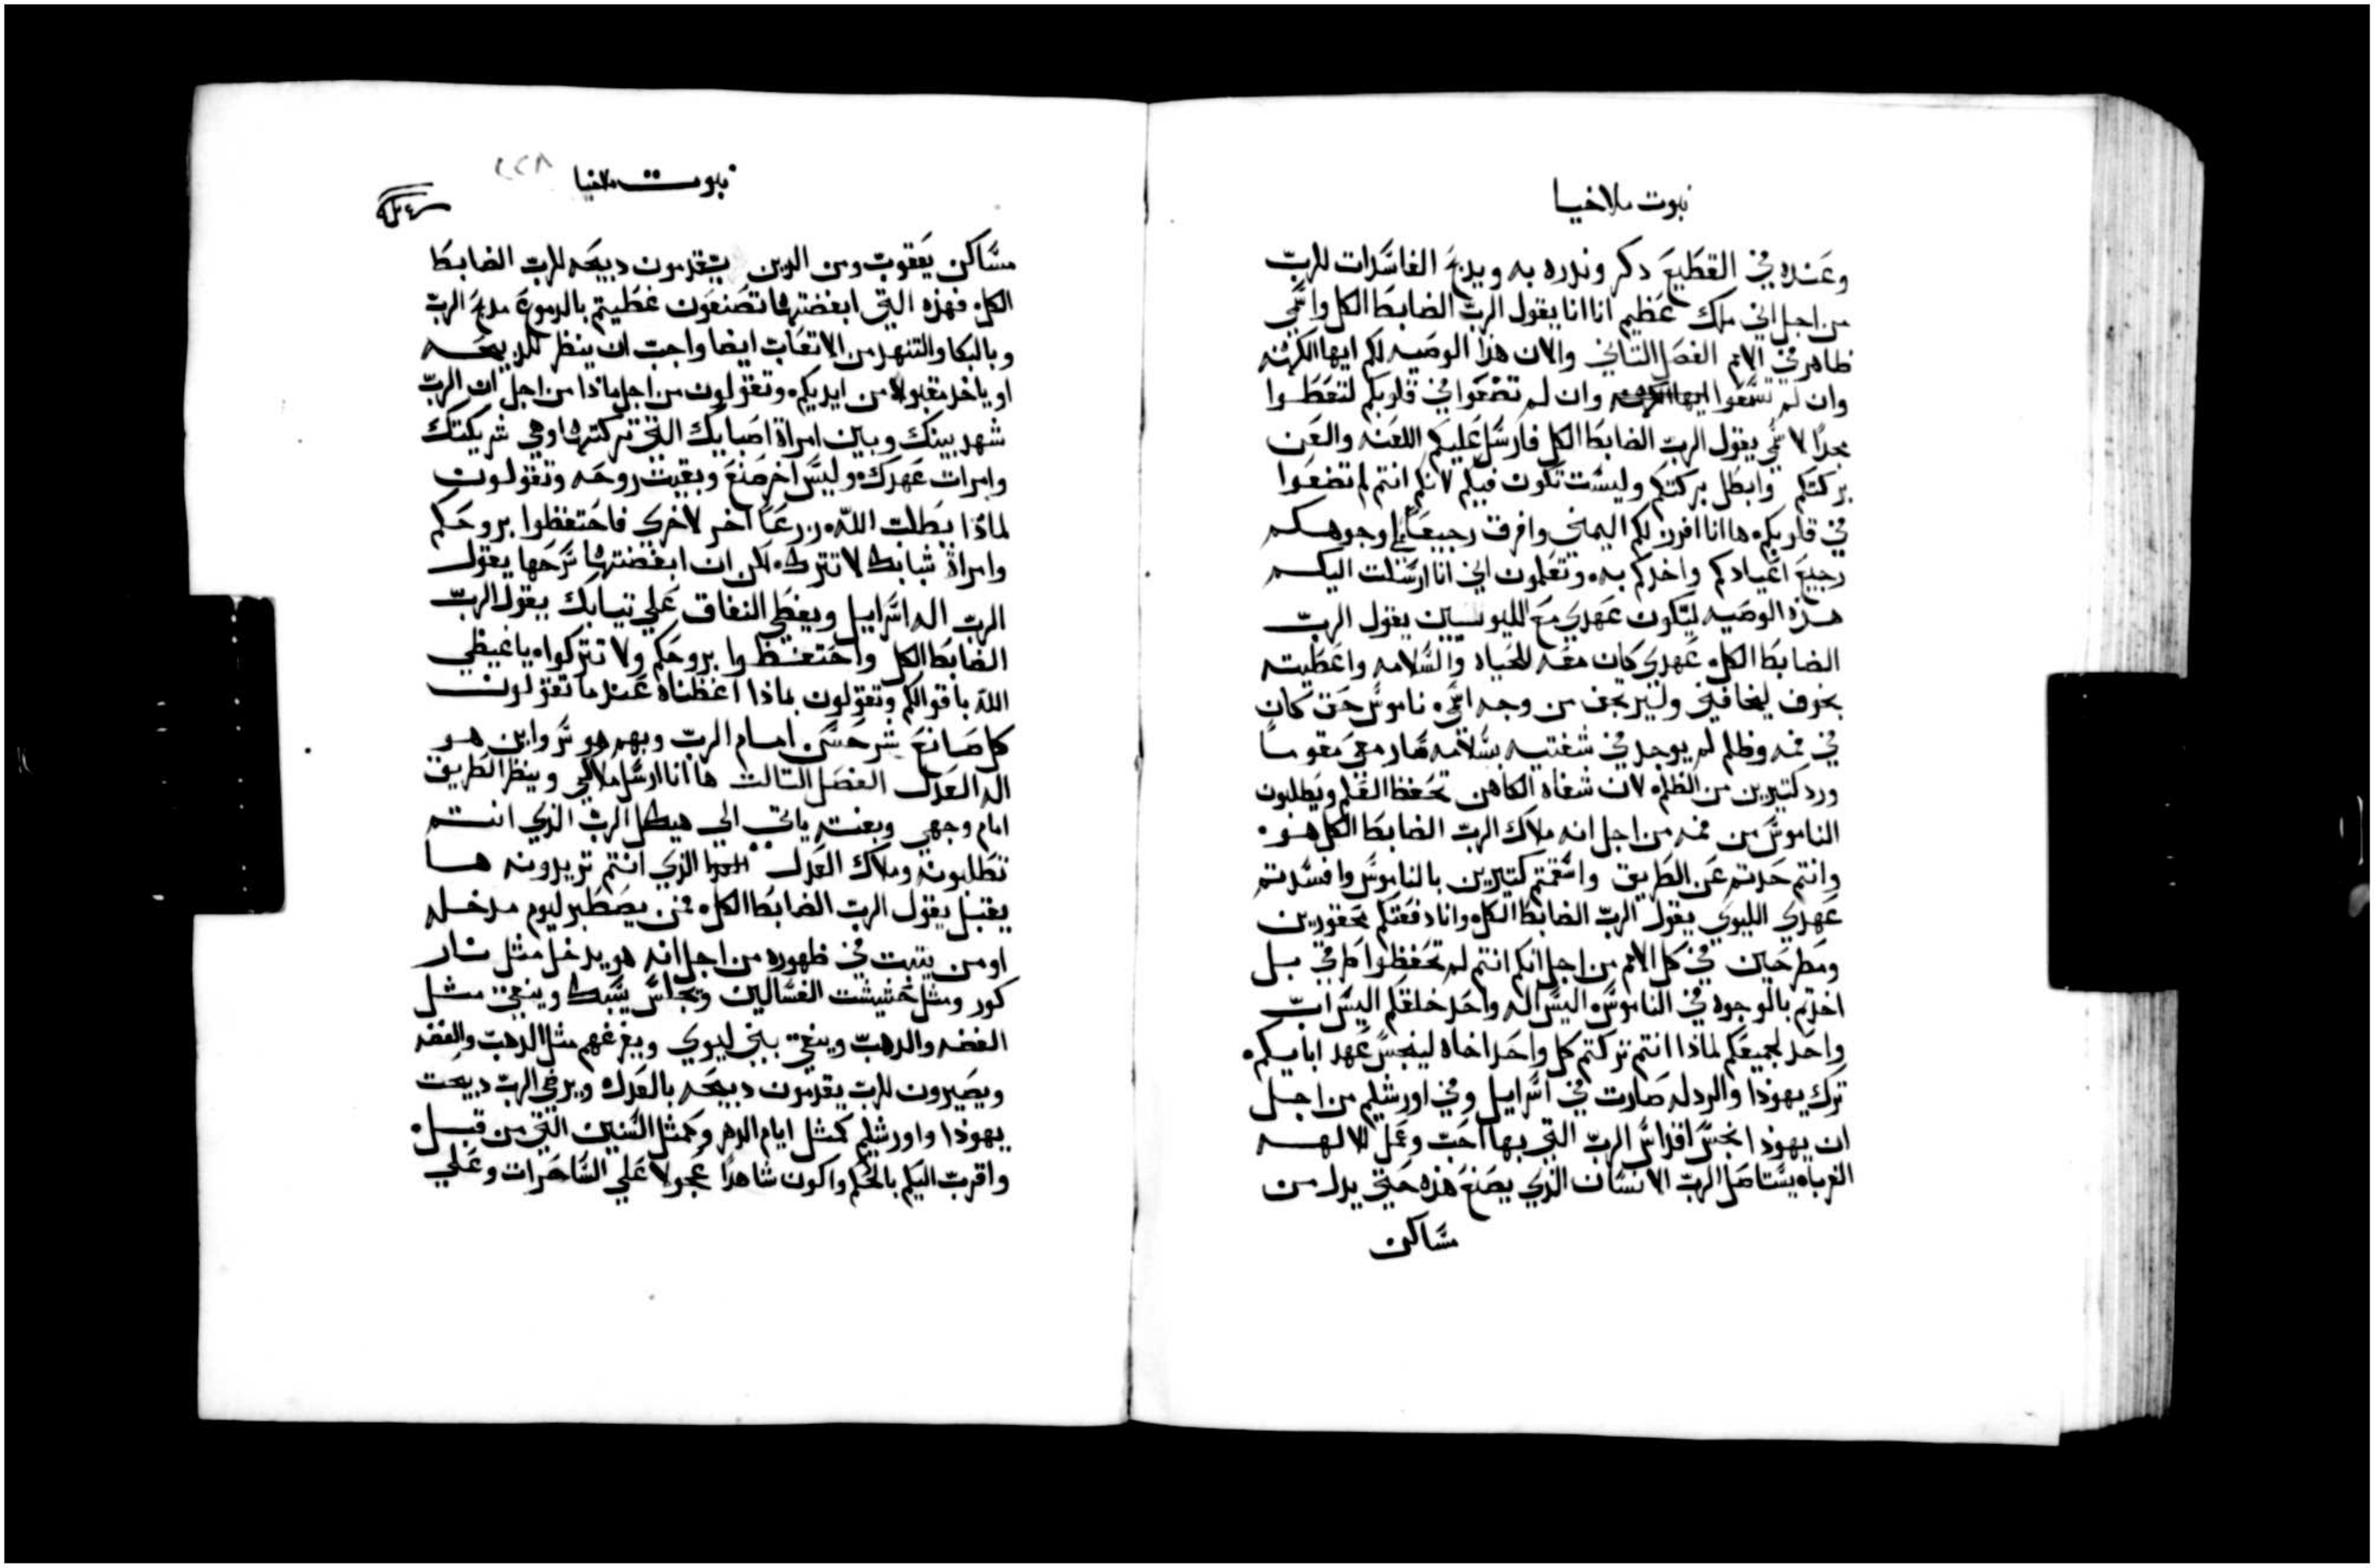 نبوت ملاخيا
وعنده في القطيع دكر وندره به ويدبح الفاسدات للرب
من اجل اني ملك عظيم انا انا يقول الرب الضابط الكل واسمي
ظاهر في الامم الفصل التاني والان هذا الوصيه لكم ايها الكهنه
وان لم تسمعوا وان لم تضعوا في قلوبكم لتعطوا
مجدًا لاسمي يقول الرب الضابط الكل فارسل عليكم اللعنه والعن
بركتكم وابطل بركتكم وليست تكون فيكم لانكم انتم لم تضعوا
في قلوبكم ها انا افرز لكم اليمني وافرق رجيعًا علي وجوهكم
رجيع اعيادكم واخدكم به وتعلمون اني انا ارسلت اليكم
هذه الوصيه لتكون عهدي مع الليونسين يقول الرب
الضابط الكل عهدي كان معه للحياه والسلامه واعطيته
بخوف ليخافني وليرتجف من وجه اسمي ناموس حق كان
في فمه وظلم لم يوجد في شفتيه بسلامه سار معي مقومًا
ورد كتيرين من الظلم لان شفاه الكاهن تحفظ العلم ويطلبون
الناموس من فمه من اجل انه ملاك الرب الضابط الكل هو
وانتم حدتم عن الطريق واسقمتم كتيرين بالناموس وافسدتم
عهدي الليوي يقول الرب الضابط الكل وانا دفعتكم محقورين
ومطرحين في كل الامم من اجل انكم انتم لم تحفظوا طرقي بل
اخدتم بالوجوه في الناموس اليس اله واحد خلقكم اليس اب
واحد لجميعكم لماذا انتم تركتم كل واحد اخاه لينجس عهد ابايكم
ترك يهودا والردله صارت في اسرايل وفي اورشليم من اجل
ان يهودا نجس اقداس الرب التي بها احب وعمل الالهه
الغرباه يستاصل الرب الانسان الذي يصنع هذه حتي يدل من
مساكن
نبوت ملاخيا
٢٢٨
مساكن يعقوب ومن الدين يتقدمون دبيحه للرب الضابط
الكل فهذه التي ابغضتها تصنعون غطيتم بالدموع مدبح الرب
وبالبكا والتنهد من الاتعاب ايضا واجب ان ينظر للدبيحه
او ياخد مقبولا من ايديكم وتقولون من اجل ماذا من اجل ان الرب
شهد بينك وبين امراة اصبايك التي تركتها وهي شريكتك
وامرات عهدك وليس اخر صنع وبقيت روحه وتقولون
لماذا يطلب الله زرعًا اخر لاخري فاحتفظوا بروحكم
وامراة شبابك لا تترك لكن ان ابغضتها سرحها يقول
الرب اله اسرايل ويغطي النفاق علي تيابك يقول الرب
الضابط الكل واحتفظوا بروحكم ولا تتركوا يا غيظي
الله باقوالكم وتقولون بماذا اغظناه عندما تقولون
كل صانع شر حسن امام الرب وبهم هو سر واين هو
اله العدل الفصل التالت ها انا ارسل ملاكي وينظر الطريق
امام وجهي وبغته ياتي الي هيكل الرب الذي انتم
تطلبونه وملاك العدل الذي انتم تريدونه ها
يقبل يقول الرب الضابط الكل فمن يصطبر ليوم مدخله
او من يتبت في ظهوره من اجل انه هو يدخل مثل نار
كور ومثل حشيشت الغسالين ويجلس يسبك وينقي مثل
الفضه والدهب وينقي بني ليوي ويفرغهم مثل الدهب والفضه
ويصيرون للرب يقدمون دبيحه بالعدل ويرضي الرب دبيحت
يهودا واورشليم كمثل ايام الدهر وكمثل السنين التي من قبل
واقرب اليكم بالحكم واكون شاهدًا عجولا علي الساحرات وعلي